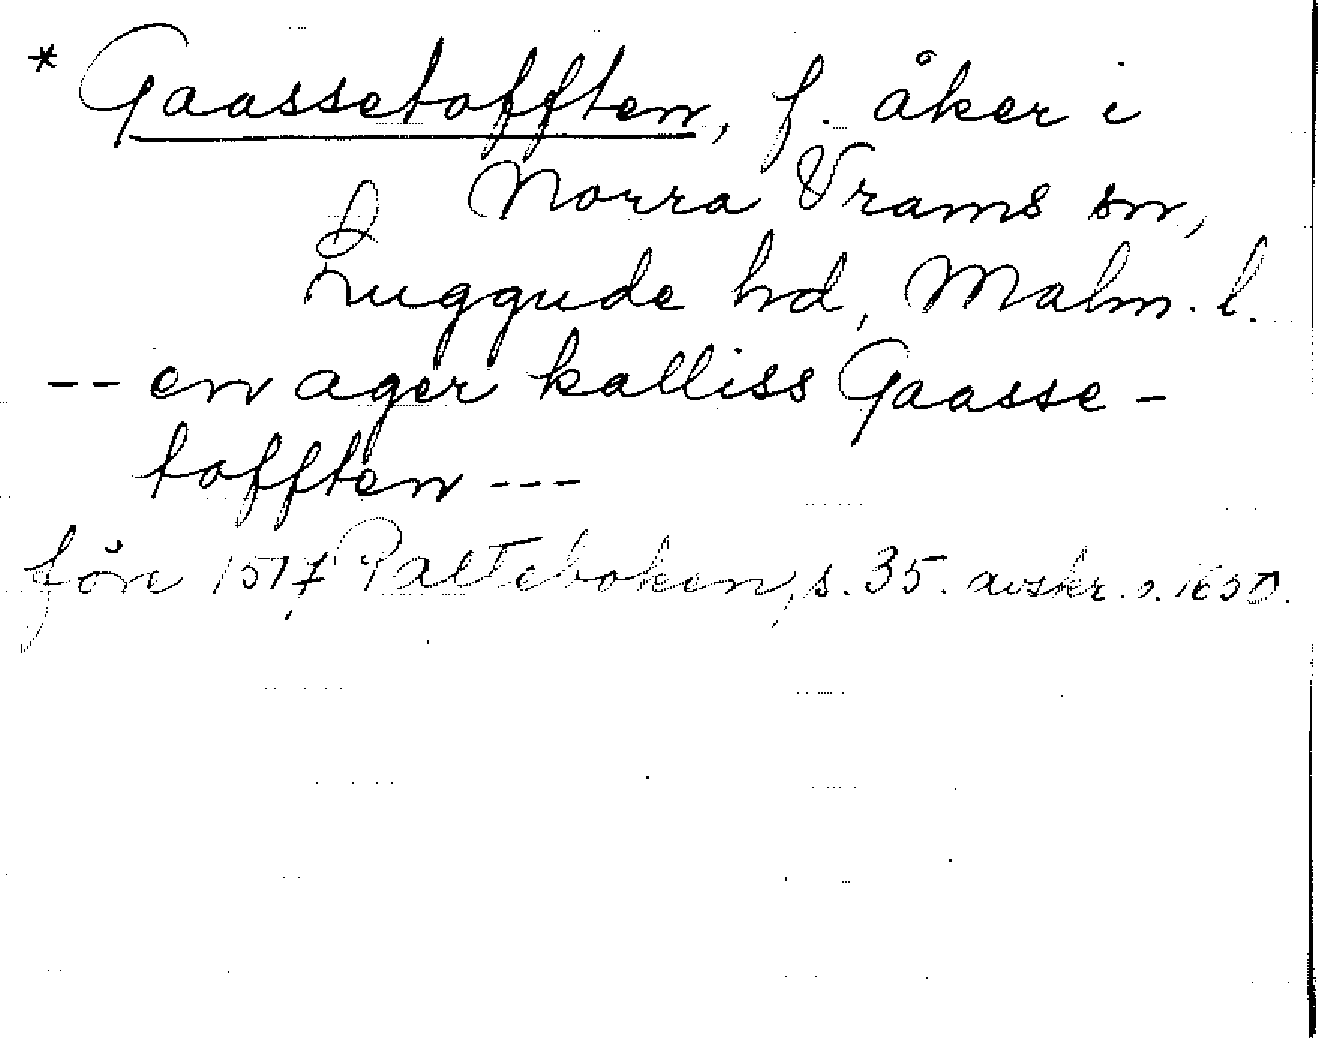 * Gaassetofften, f. åker i
Norra Vrams sn,
Luggude hd, Malm. l.
-- en ager kalliss Gaasse-
tofften ---
före 1517, Palteboken, s. 35. avskr. o. 1650.